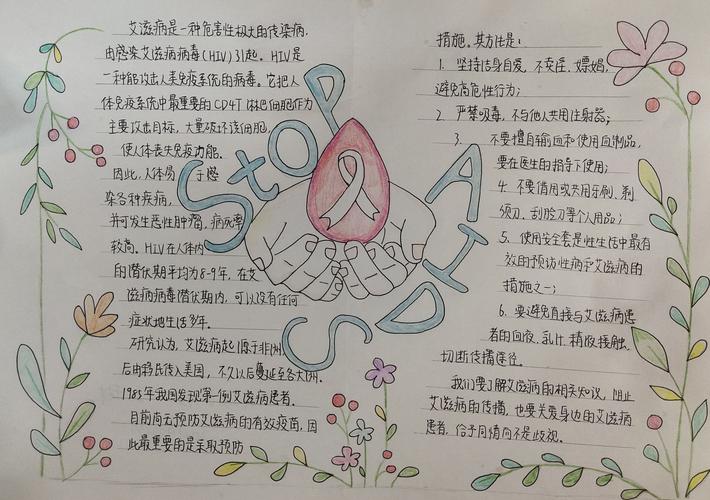 艾滋病是一种危害性极大的传染病,
由感染艾滋病病毒(HIV)引起。HIV是
一种能攻击人类免疫系统的病毒。它把人
体免疫系统中最重要的CD4T淋巴细胞作为
主要攻击目标,大量破坏该细胞,
使人体丧失免疫功能。
因此,人体易于感
染各种疾病,
并可发生恶性肿瘤,病死率
较高。HIV在人体内
的潜伏期平均为8-9年,在艾
滋病病毒潜伏期内,可以没有任何
症状地生活多年。
研究认为,艾滋病起源于非洲,
后由移民传入美国,不久以后蔓延至各大洲。
1985年我国发现第一例艾滋病患者。
目前尚无预防艾滋病的有效疫苗,因
此最重要的是采取预防
Stop
AIDS
措施。其方法是:
1. 坚持洁身自爱,不卖淫、嫖娼,
避免高危性行为;
2. 严禁吸毒,不与他人共用注射器;
3. 不要擅自输血和使用血制品,
要在医生的指导下使用;
4. 不要借用或共用牙刷、剃
须刀、刮脸刀等个人用品;
5. 使用安全套是性生活中最有
效的预防性病和艾滋病的
措施之一;
6. 要避免直接与艾滋病患
者的血液、乳汁、精液接触,
切断传播途径。
我们要了解艾滋病的相关知识,阻止
艾滋病的传播,也要关爱身边的艾滋病
患者,给予同情而不是歧视。